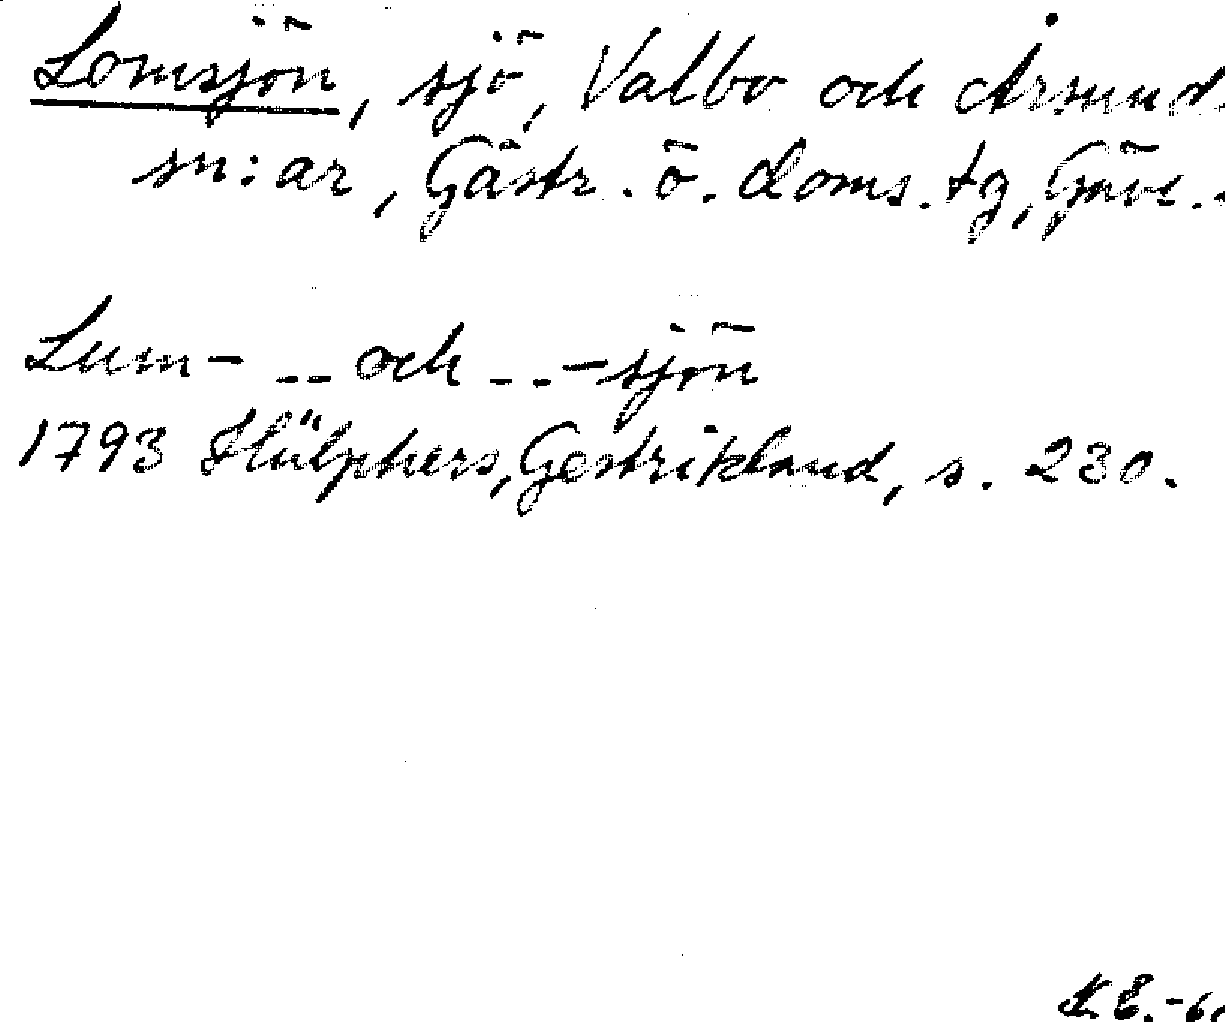 Lomsjön, sjö, Valbo och Årsund
sn:ar, Gästr. ö. doms. tg, Gävl.
Lum- -- och -- -sjön
1793 Hülphers, Gestrikland, s. 230.
K.E.-6